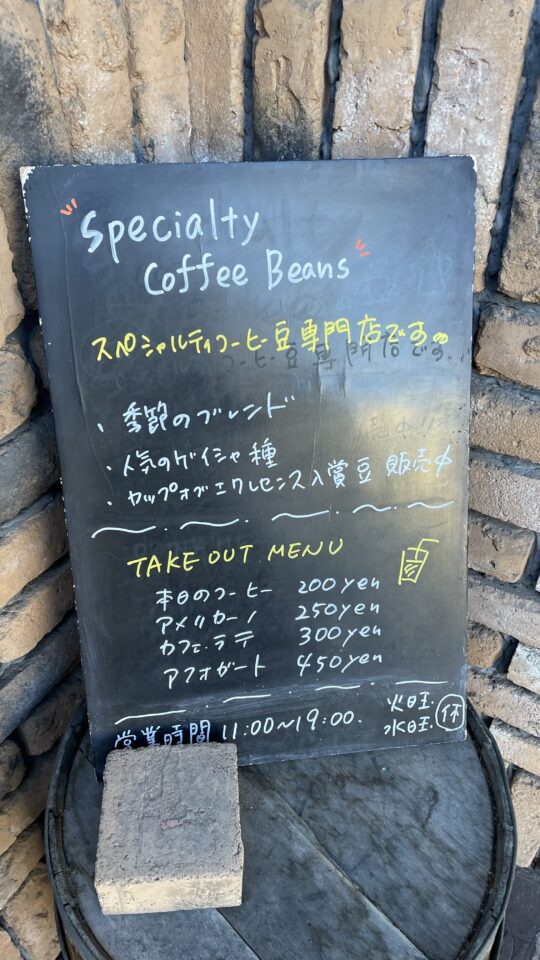 Specialty
Coffee Beans
スペシャルティコーヒー豆専門店です。
・季節のブレンド
・人気のゲイシャ種
・カップオブエクセレンス入賞豆 販売中
TAKE OUT MENU
本日のコーヒー 200yen
アメリカーノ 250yen
カフェ・ラテ 300yen
アフォガート 450yen
営業時間 11:00~19:00.
火曜.
水曜. 休